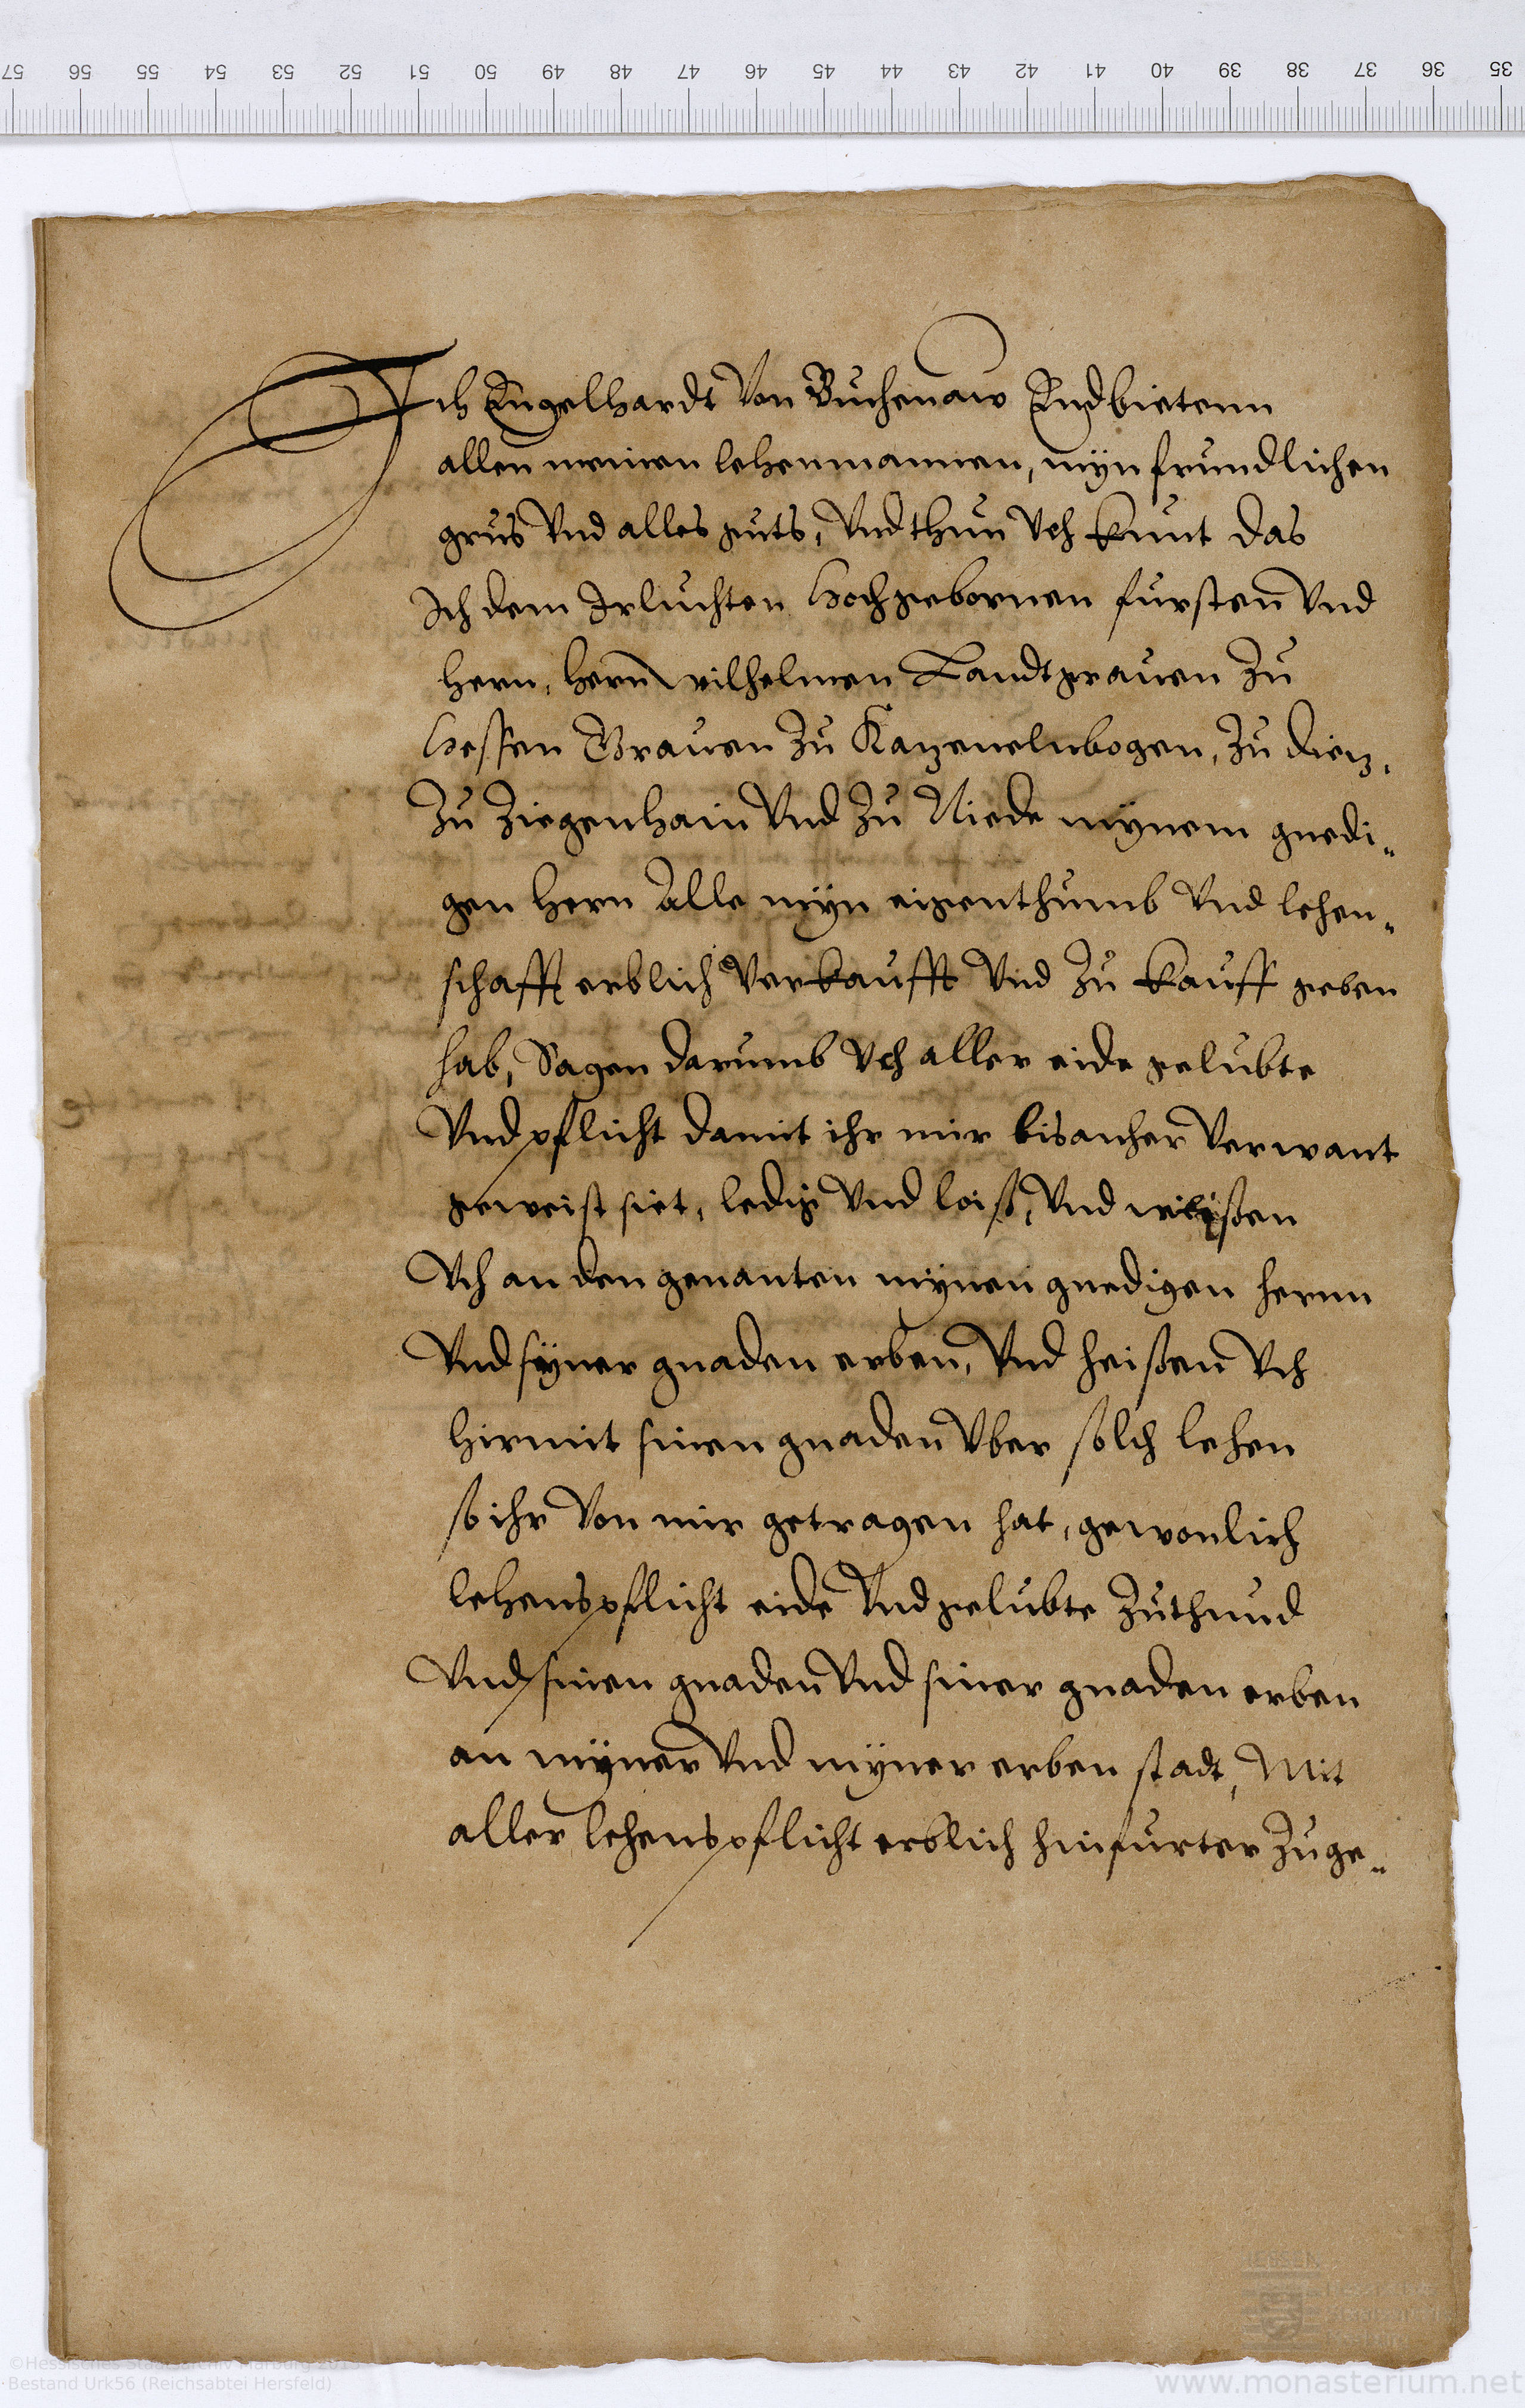 57 56 55 54 53 52 51 50 49 48 47 46 45 44 43 42 41 40 39 38 37 36 35
Ich Engelhardt von Buchenaw Endbietenn
allen meinen lehenmannen, myn frundlichen
grus vnd alles guts, vnd thun vch kunt das
Ich dem Irluchten Hochgebornen fursten vnd
hern, hern wilhelmen Landtgrauen zu
Hessen Grauen zu Kazenelnbogen, zu diez,
zu Ziegenhain vnd zu Niede mynem gnedi„
gen hern Alle myn eigenthumb vnd lehen„
schafft erblich verkaufft vnd zu kauff geben
hab, Sagen darumb vch aller eide gelubte
vnd pflicht damit ihr mir bisanher verwant
geweist siet, ledig vnd loiß, vnd
vch an den genanten mynen gnedigen hernn
vnd syner gnaden erben, vnd heißen vch
hirmit sinen gnaden vber solch lehen
so ihr von mir getragen hat, gewonlich
lehenspflicht eide vnd gelubte zuthund
vnd sinen gnaden vnd siner gnaden erben
an myner vnd myner erben stadt, Mit
aller lehenspflicht erblich hinfurter zu ge„
©Hessisches Staatsarchiv Marburg 2013
Bestand Urk56 (Reichsabtei Hersfeld)
www.monasterium.net